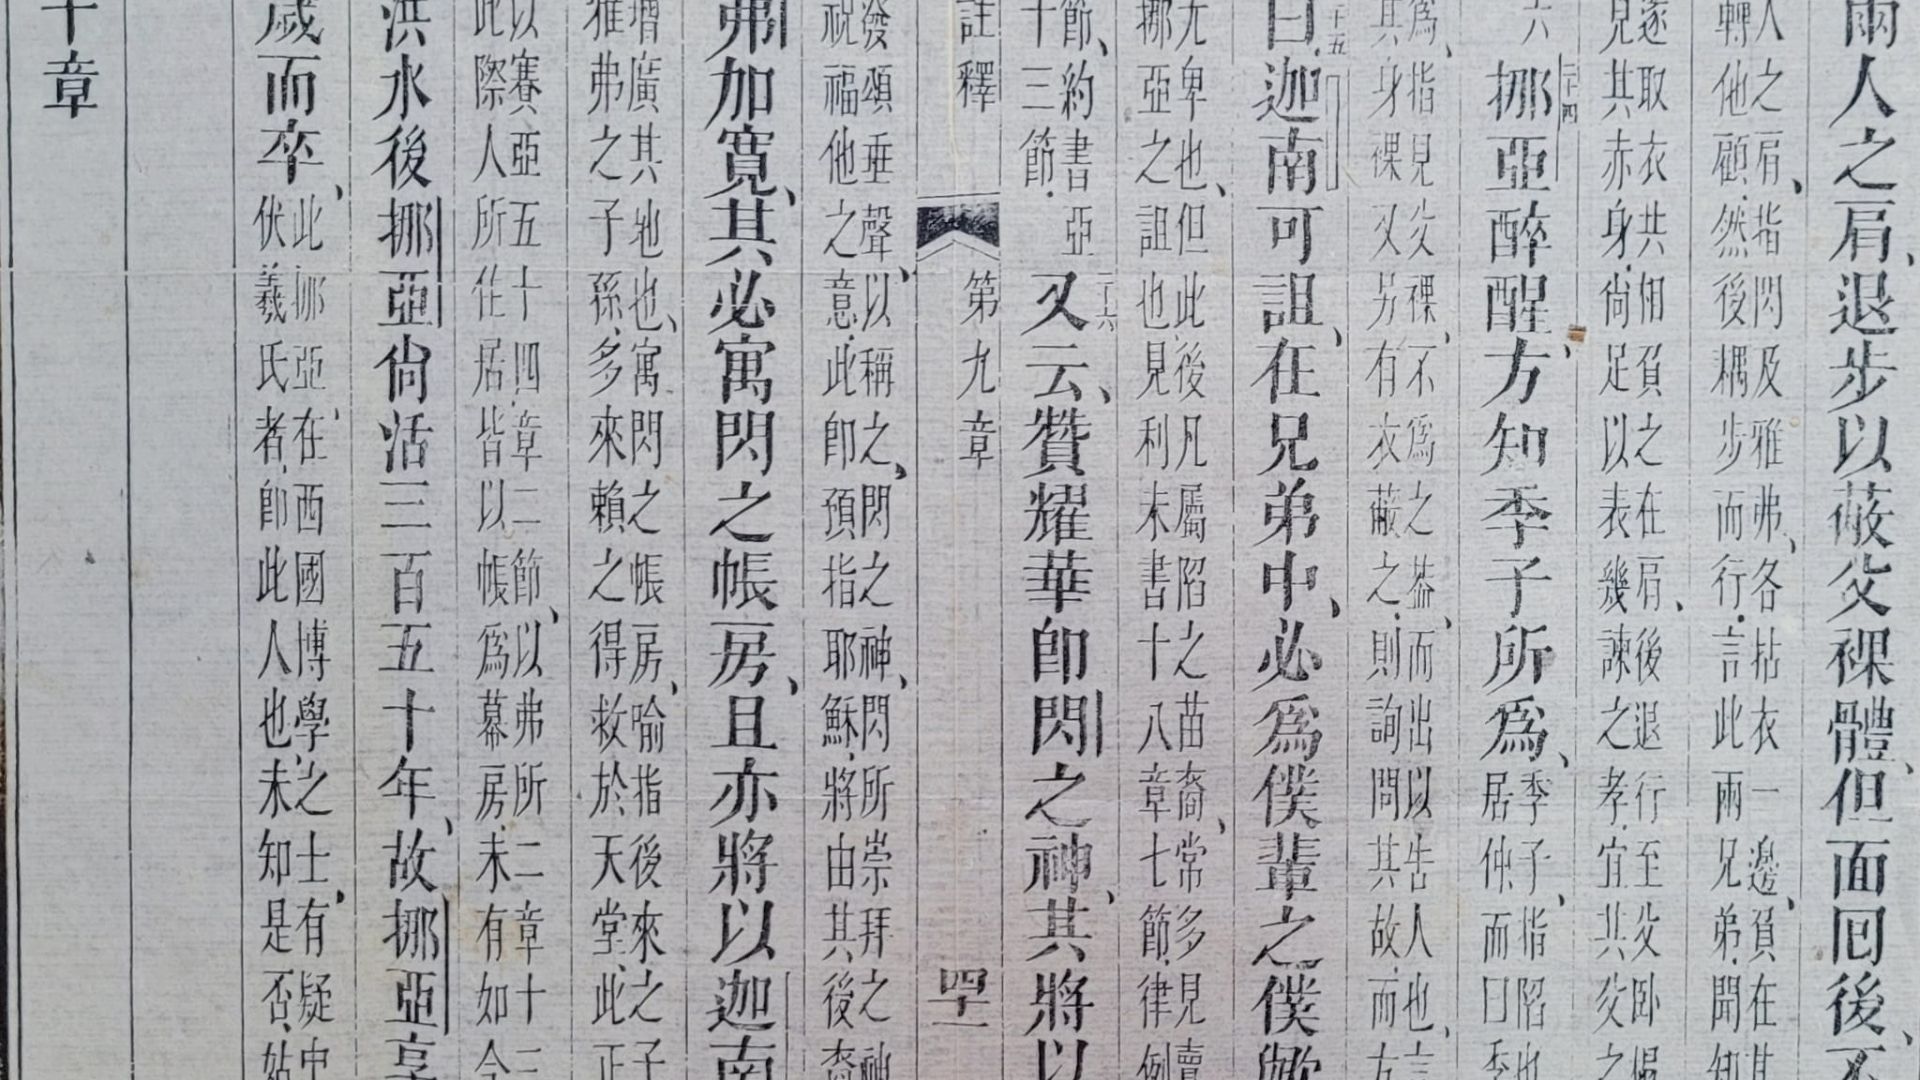 兩人之肩、退步以蔽父裸體、但面囘後、不
人之肩、指閃及雅弗、各拈衣一邊、負在其
轉他顧、然後耦步而行、言此兩兄弟、聞知
遂取衣共相負之在肩、後退行至父臥榻
見其赤身、尙足以表幾諫之孝、宜共父之
六
二十四
挪亞醉醒、方知季子所爲、
季子、指陷也
居仲、而曰季
爲、指見父裸、不爲之葢、而出以告人也、言
其身裸、又另有衣蔽之、則詢問其故、而方
二十五
曰、迦南可詛、在兄弟中、必爲僕輩之僕歟
尤卑也、但此後凡屬陷之苗裔、常多見賣
挪亞之詛也、見利未書十八章七節、律例
節、約書亞
十三節、
二十六
又云、贊耀華卽閃之神、其將以
註釋
第九章
四十二
發頌垂聲、以稱之、閃之神、閃所崇拜之神
祝福他之意、此卽預指耶穌、將由其後裔
弗加寬、其必寓閃之帳房、且亦將以迦南
增廣其地也、寓閃之帳房、喻指後來之子
雅弗之子孫、多來賴之得救於天堂、此正
以賽亞五十四章二節、以弗所二章十二
此際人所住居、皆以帳爲幕房、未有如今
洪水後挪亞尙活三百五十年、故挪亞享
歲而卒、
此挪亞、在西國博學之士、有疑中
伏羲氏者、卽此人也、未知是否、姑
十章